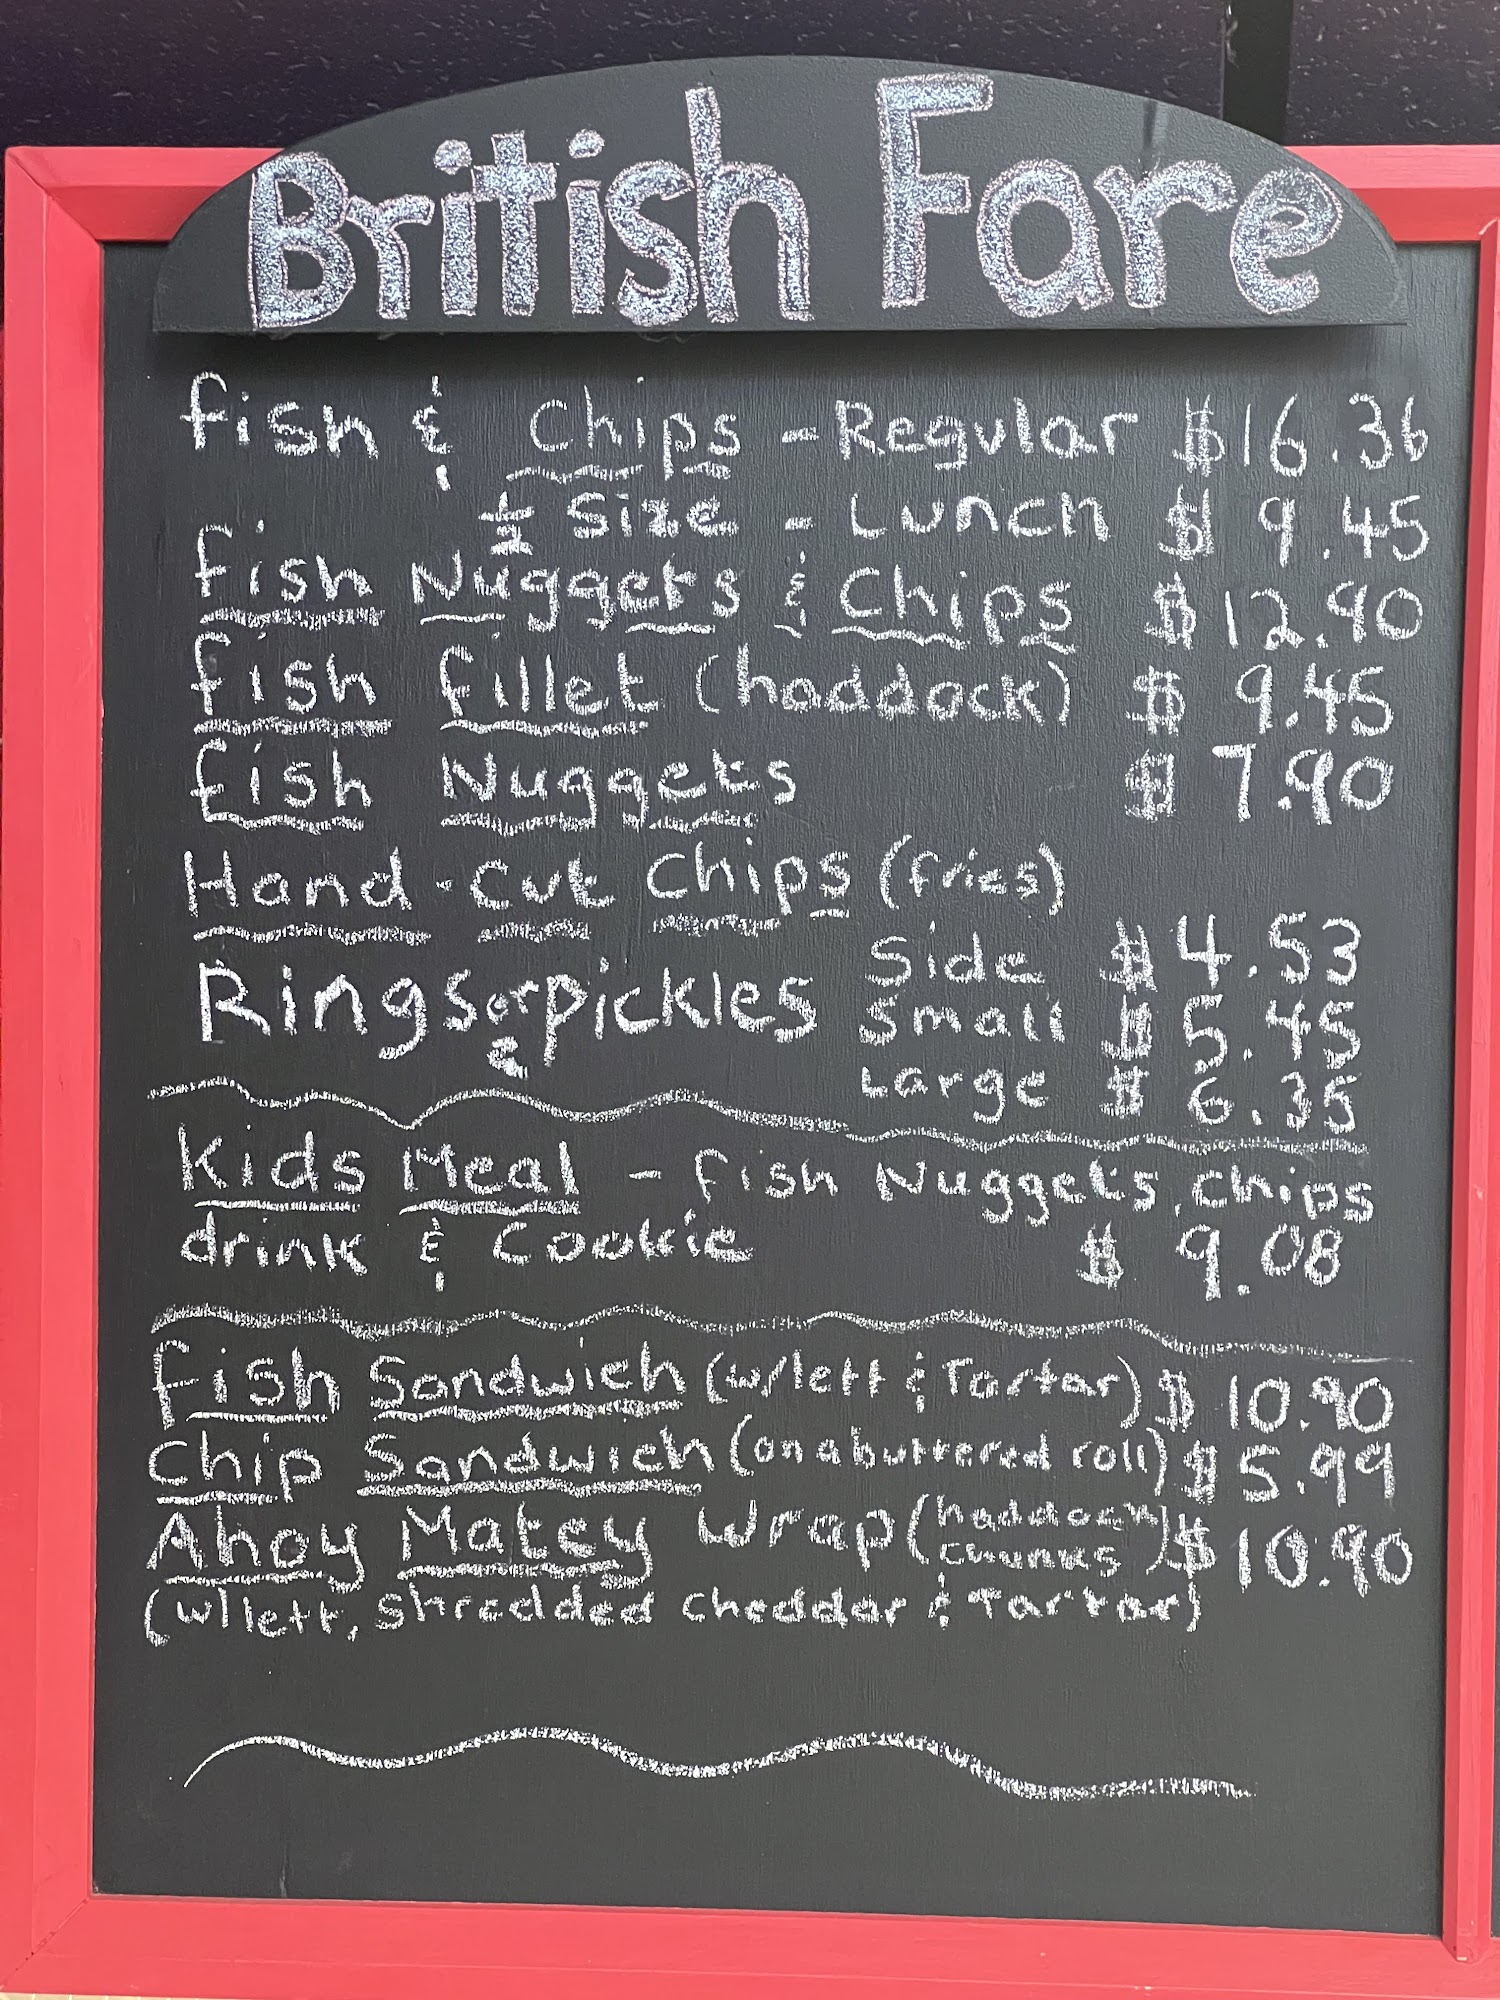 British Fare
fish & Chips - Regular $16.36
½ Size - Lunch $ 9.45
fish Nuggets & Chips $12.90
fish fillet (haddock) $ 9.45
fish Nuggets $ 7.90
Hand-Cut Chips (fries)
Side $4.53
Rings or pickles Small $5.45
Large $ 6.35
Kids Meal - fish Nuggets, chips
drink & Cookie $ 9.08
Fish Sandwich (w/lett & Tartar) $ 10.90
Chip Sandwich (on a buttered roll) $ 5.99
Ahoy Matey Wrap (haddock chunks) $10.90
(w/lett, shredded cheddar & Tartar)